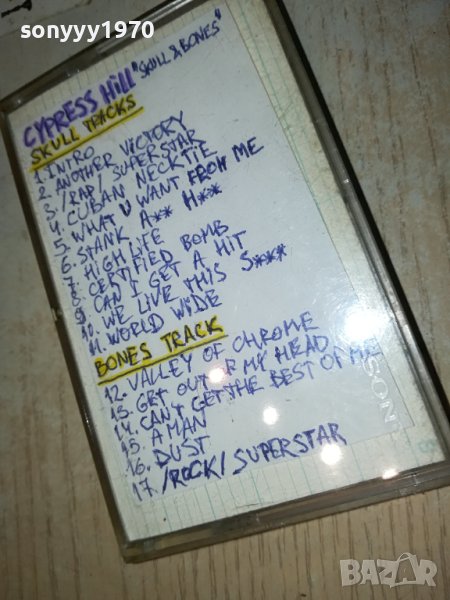 sonyyy1970
CYPRESS HILL "SKULL & BONES"
SKULL TRACKS
1. INTRO
2. ANOTHER VICTORY
3. /RAP/ SUPERSTAR
4. CUBAN NECKTIE
5. WHAT U WANT FROM ME
6. STANK A** H**
7. HIGH LIFE
8. CERTIFIED BOMB
9. CAN'T GET A HIT
10. WE LIVE THIS S***
11. WORLD WIDE
BONES TRACK
12. VALLEY OF CHROME
13. GET OUT OF MY HEAD
14. CAN'T GET THE BEST OF ME
15. A MAN
16. DUST
17. /ROCK/ SUPERSTAR
SON
BAZAR
bg